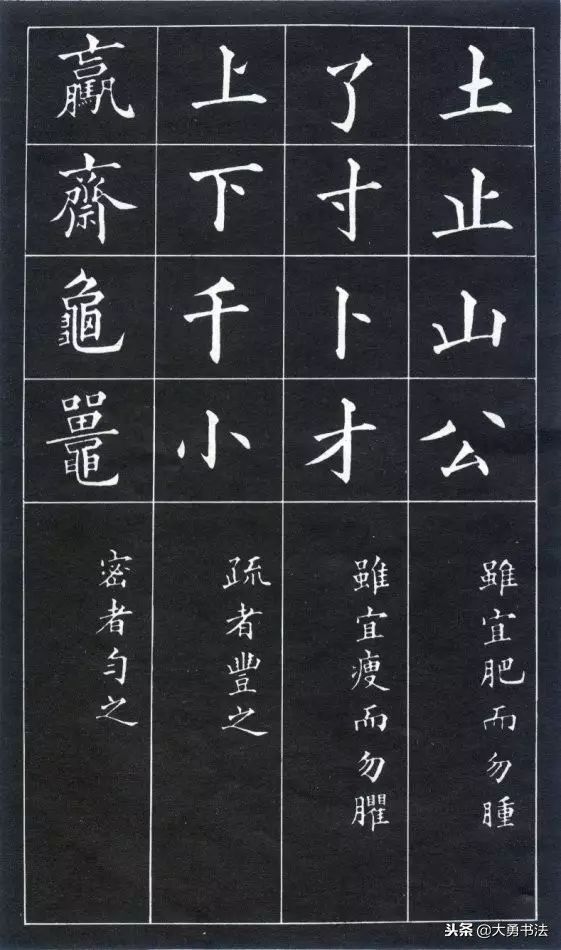 土止山公
雖宜肥而勿腫
了寸卜才
雖宜瘦而勿臞
上下千小
疏者豐之
驘齋龜鼉
密者匀之
头条 @大勇书法